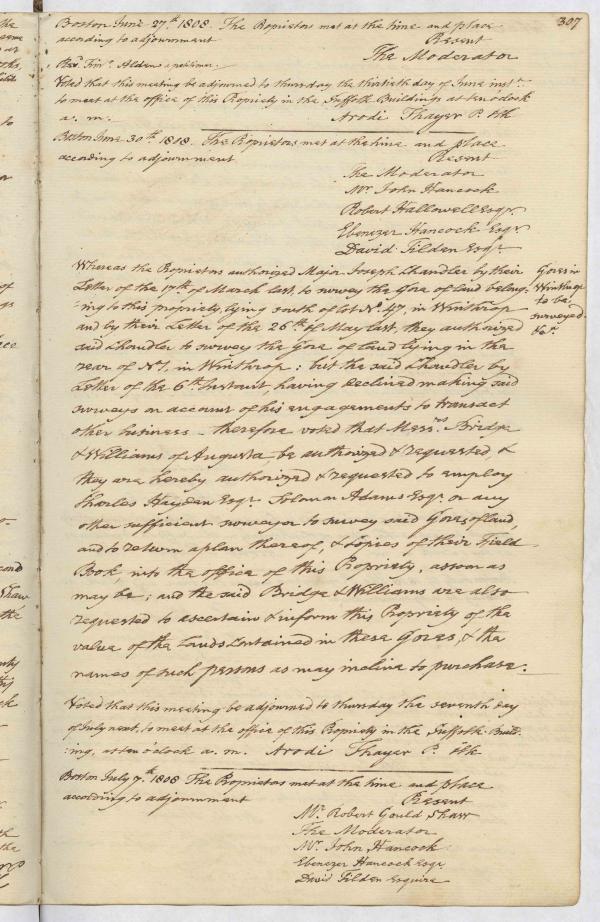 307
Boston June 27th. 1808. The Proprietors met at the time and place
according to adjournment Present
The Moderator
Revd. Timy. Alden a petitioner.
Voted that this meeting be adjourned to thursday the thirtieth day of June inst.
to meet at the office of this Propriety in the Suffolk Buildings at ten o'clock
a. m. Arodi Thayer P. Clk
Boston June 30th. 1808. The Proprietors met at the time and place
according to adjournment Present
The Moderator
Mr. John Hancock
Robert Hallowell Esqr.
Ebenezer Hancock Esqr.
David Tilden Esqr.
Whereas the Proprietors authorized Major Joseph Chandler by their
Letter of the 17th. of March last, to survey the Gore of land belong-
:ing to this propriety, lying south of lot No. 47, in Winthrop
and by their Letter of the 26th. of May last, they authorized
said Chandler to survey the Gore of land lying in the
rear of No. 1, in Winthrop; but the said Chandler by
Letter of the 6th. Instant, having declined making said
surveys on account of his engagements to transact
other business – therefore voted that Messrs. Bridge
& Williams of Augusta be authorized & requested &
they are hereby authorized & requested to employ
Charles Hayden Esqr. Solomon Adams Esqr. or any
other sufficient surveyor to survey said Gores of land,
and to return a plan thereof, & Copies of their Field
Book, into the office of this Propriety, as soon as
may be; and the said Bridge & Williams are also
requested to ascertain & inform this Propriety of the
value of the Lands Contained in these Gores, & the
names of such persons as may incline to purchase.
Gores in
Winthrop
to be
surveyed
Voted that this meeting be adjourned to thursday the seventh day
of July next, to meet at the office of this Propriety in the Suffolk Build-
:ing, at ten o'clock a. m. Arodi Thayer P. Clk
Boston July 7th. 1808 The Proprietors met at the time and place
according to adjournment Present
Mr. Robert Gould Shaw
The Moderator
Mr. John Hancock
Ebenezer Hancock Esqr.
David Tilden Esquire